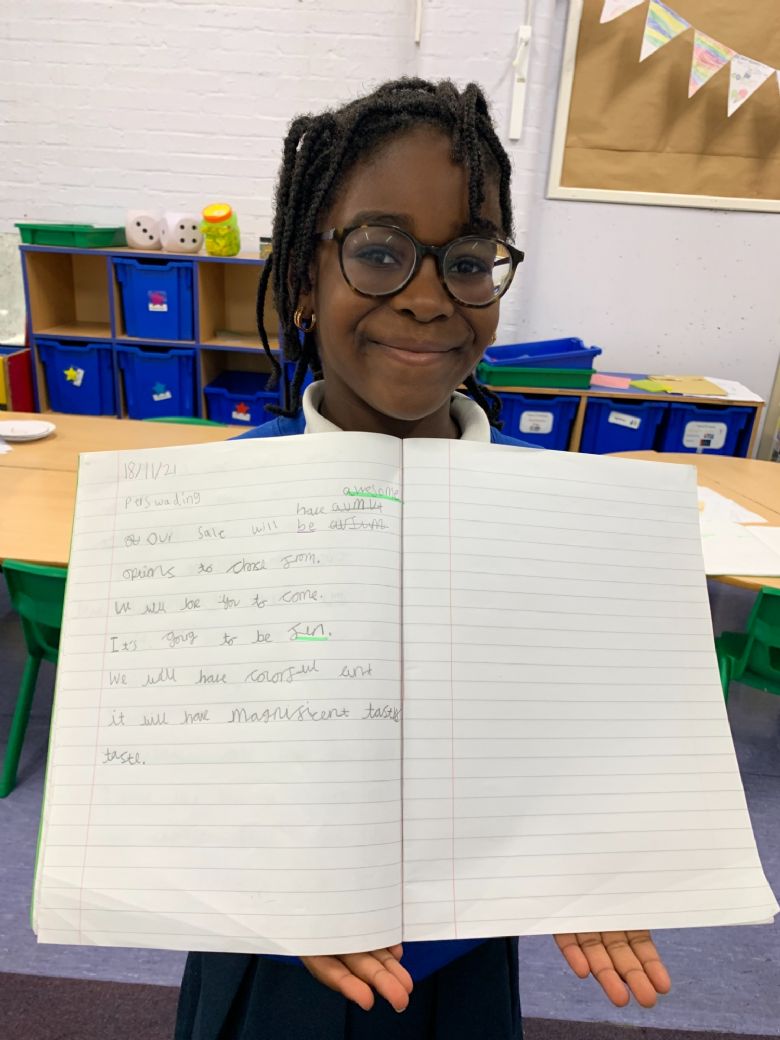 18/11/21
Perswading
awesome
have
Our sale will be
options to chose from.
We will loe you to come.
It's goig to be fun.
We will have colorful art
it will have magnificent taste
taste.